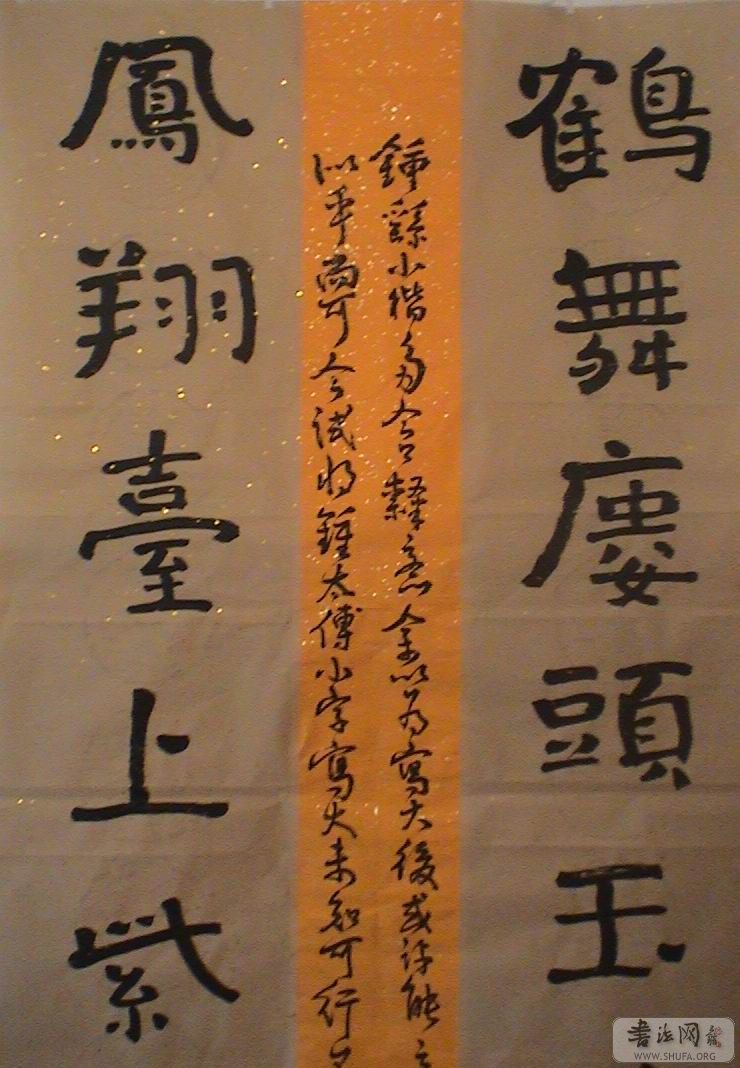 鶴舞廔頭玉
鍾繇小楷多含隸意余以为寫大後或許能
似乎尚可今試将鍾太傅小字寫大未知可行
鳳翔臺上紫
書法网
WWW.SHUFA.ORG